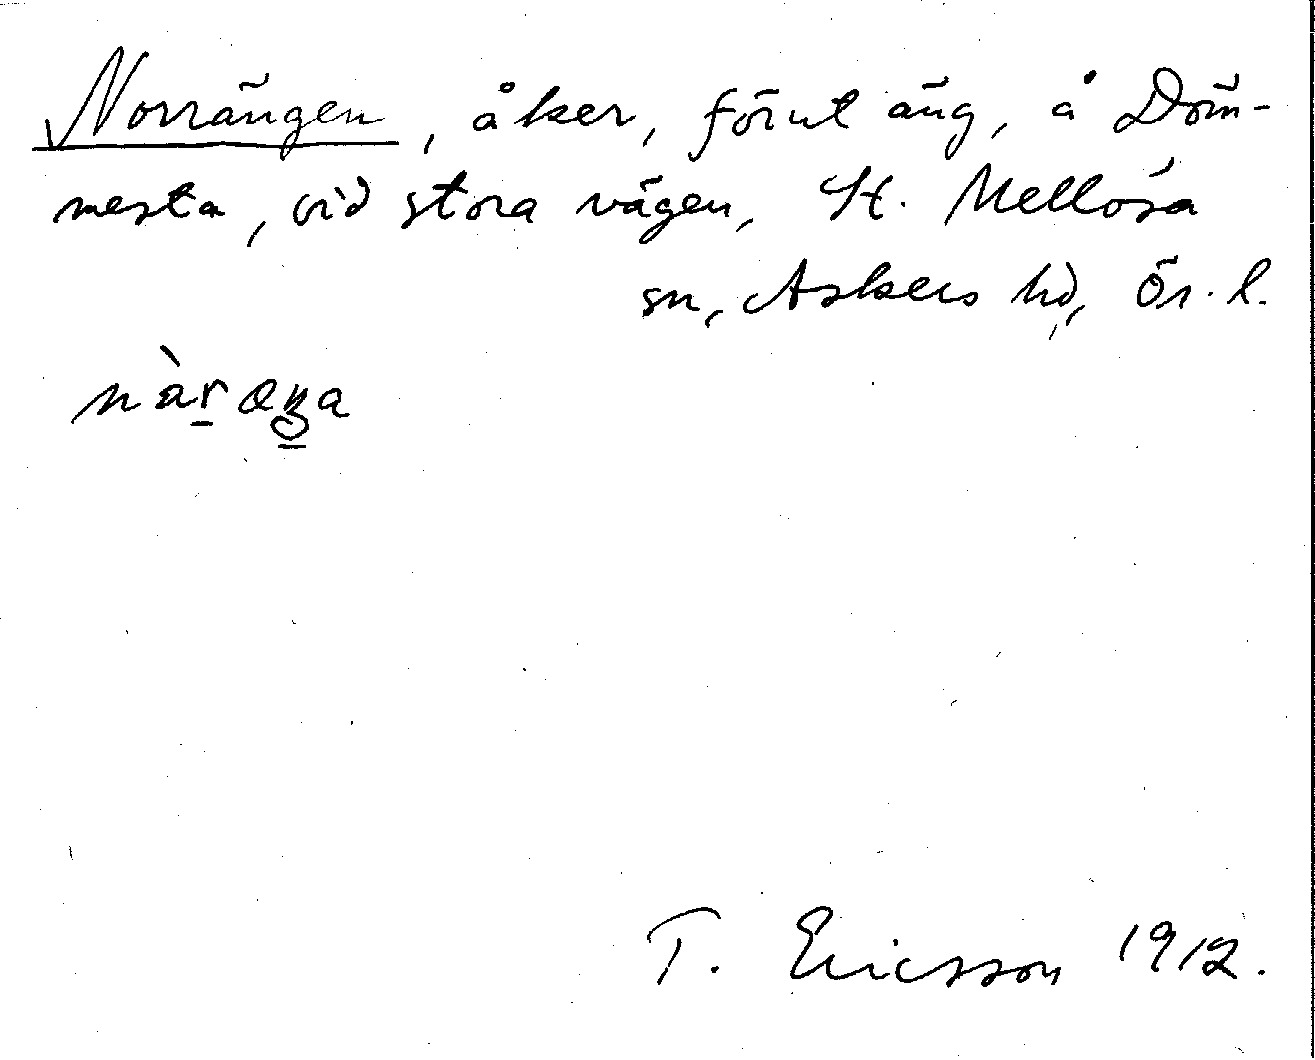 Norrängen, åker, förut äng, å Döm-
mesta, vid stora vägen, St. Mellösa
sn, Askers hd, Ör. l.
nàr æŋa
T. Ericsson 1912.